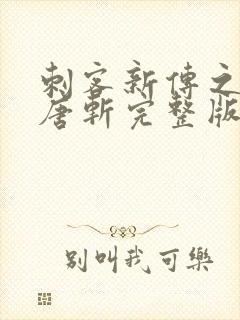 刺客新傳之
唐斬完整版
別叫我可樂